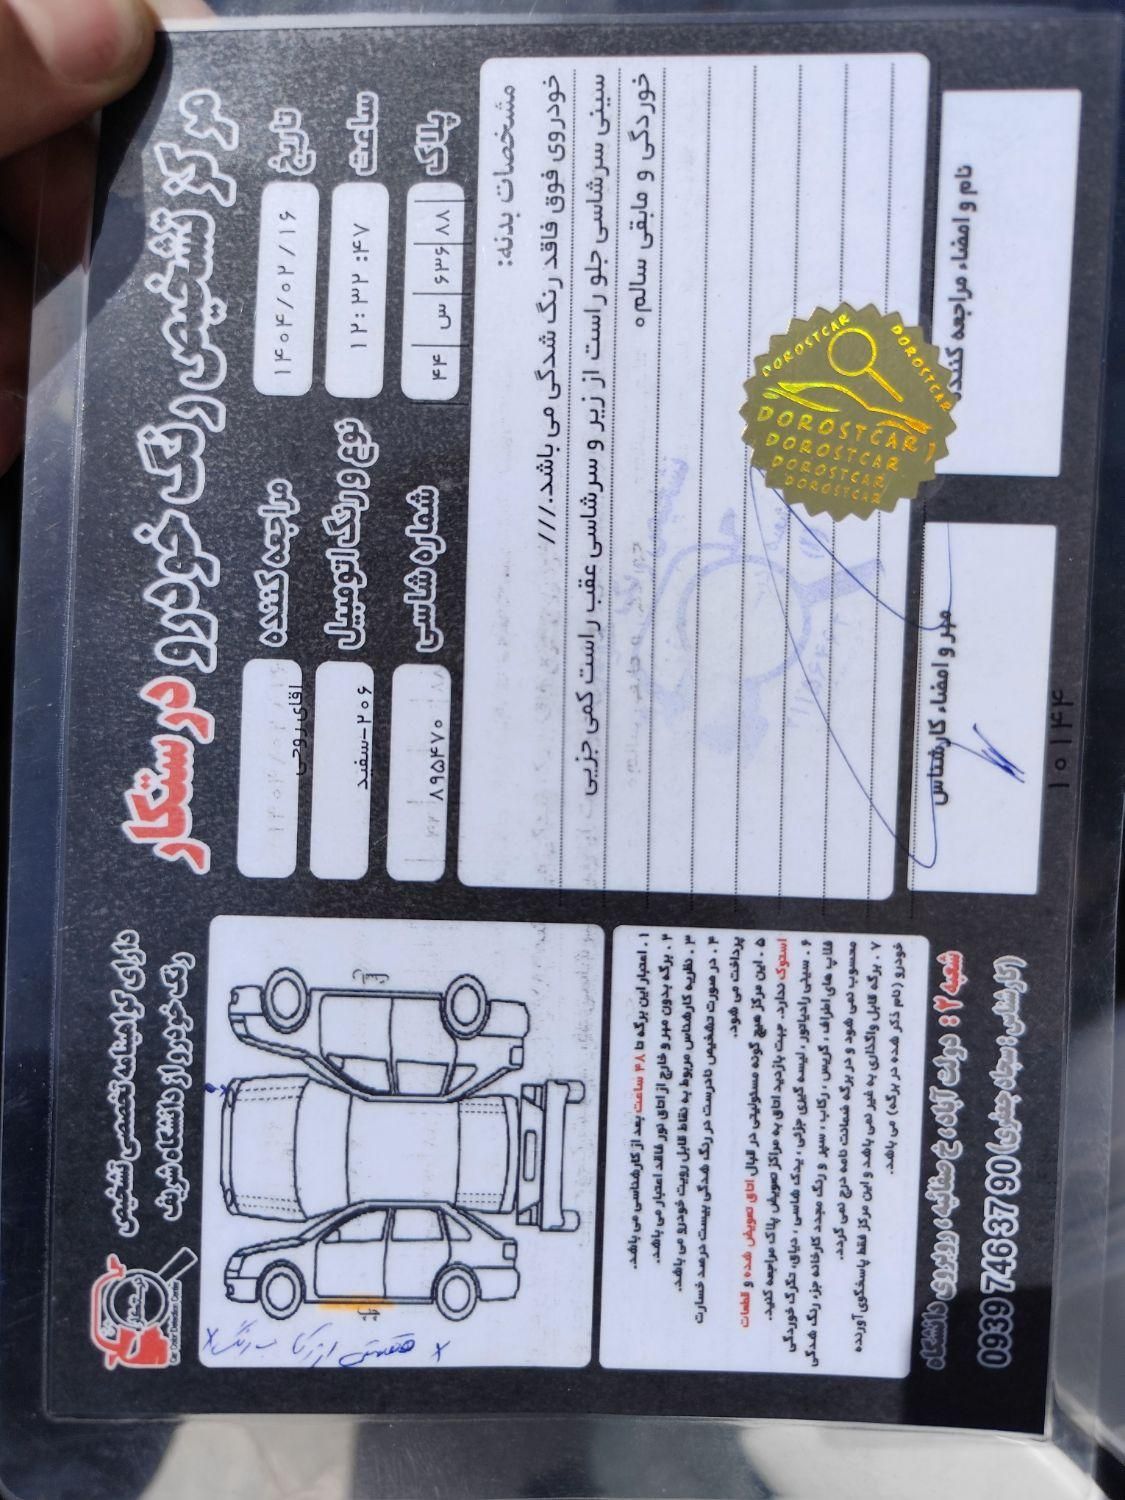 مرکز تشخیص رنگ خودرو درستکار
دارای گواهینامه تخصصی تشخیص
رنگ خودرو از دانشگاه شریف
تشخیص رنگ
Car Color Detection Center
تاریخ ۱۴۰۴/۰۲/۱۶
مراجعه کننده اقای روحی
ساعت ۱۲:۳۲:۴۷
نوع و رنگ اتومبیل ۲۰۶-سفند
پلاک ۷۷ | ۶۳۶ | س | ۴۴
شماره شاسی ۸۹۵۴۷۰
مشخصات بدنه:
خودروی فوق فاقد رنگ شدگی می باشد.///
سینی سرشاسی جلو راست از زیر و سرشاسی عقب راست کمی جزیی
خوردگی و مابقی سالم ه
DOROSTCAR
DOROSTCAR
DOROSTCAR
DOROSTCAR
DOROSTCAR
DOROSTCAR
نام و امضاء مراجعه کننده
مهر و امضاء کارشناس
۱۰۱۴۴
۱. اعتبار این برگه تا ۴۸ ساعت بعد از کارشناسی می باشد.
۲. برگه بدون مهر و خارج از اتاق نور فاقد اعتبار می باشد.
۳. نظریه کارشناس مربوط به نقاط قابل رویت خودرو می باشد.
۴. در صورت تشخیص نادرست در رنگ شدگی بیست درصد خسارت
پرداخت می شود.
۵. این مرکز هیچ گونه مسئولیتی در قبال اتاق تعویض شده و قطعات
استوک ندارد. جهت بازدید اتاق به مراکز تعویض پلاک مراجعه کنید.
۶. سینی رادیاتور، لیسه گیری جزئی، یدک شاسی، دیاق، تگرگ خوردگی
قاب های اطراف، گریس، رکاب، سپر و رنگ مجدد کارخانه جزء رنگ شدگی
محسوب نمی شود و در برگه ضمانت نامه درج نمی گردد.
۷. برگه قابل واگذاری به غیر نمی باشد و این مرکز فقط پاسخگوی آورنده
خودرو (نام ذکر شده در برگه) می باشد.
شعبه ۲: دولت آباد، خ صفائیه، روبروی دانشگاه
0939 746 37 90 (کارشناس: سجاد جعفری)